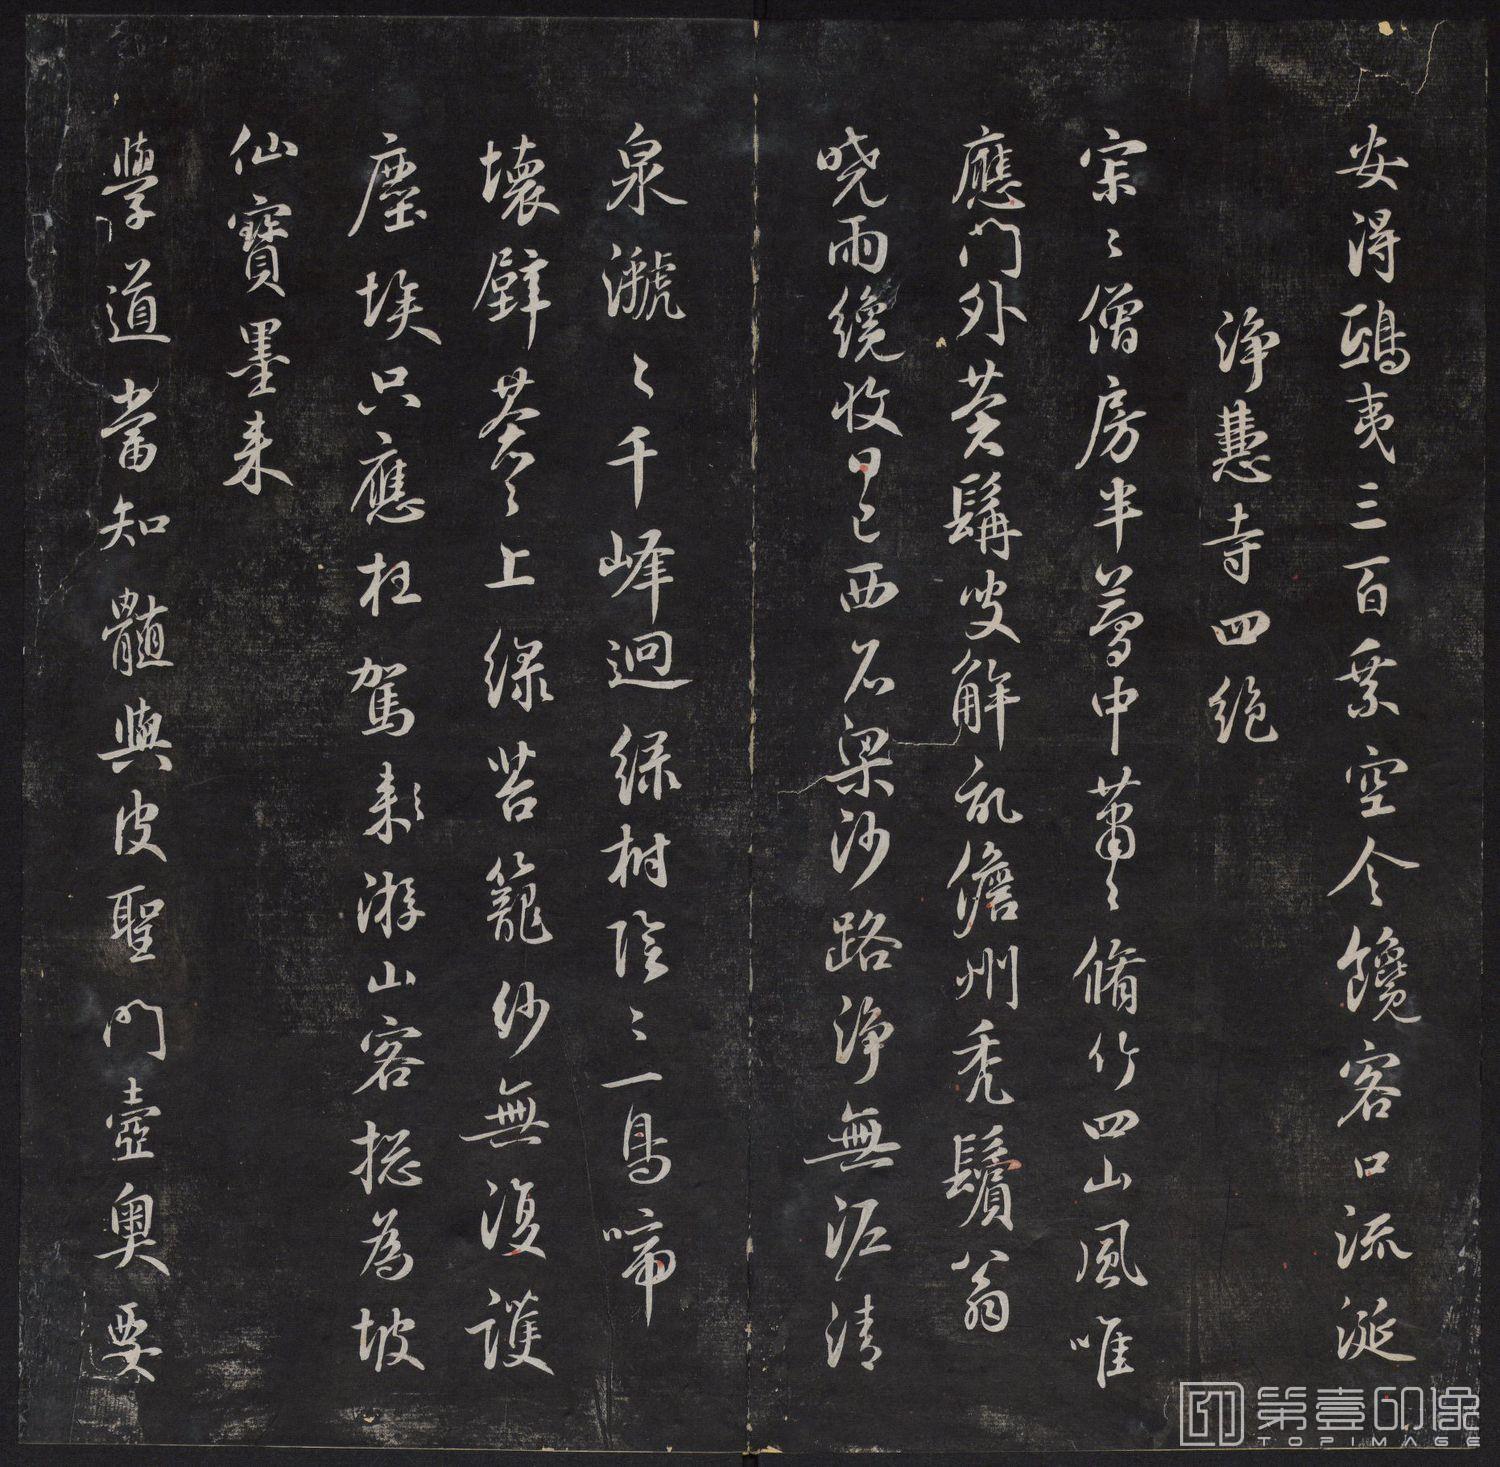 安得鴟夷三百乘空令饞客口流涎
淨慧寺四絶
寂〻僧房半夢中蕭〻脩竹四山風唯
應門外蒼髯叟解亂儋州禿鬢翁
曉雨纔收日已西石梁沙路淨無泥清
泉㶁〻千峰迥綠樹陰〻一鳥啼
壞壁蒼〻上綠苔籠紗無復護
塵埃只應枉駕来游山客揔為坡
仙寶墨来
學道當知髓與皮聖門壼奥要
第壹印像
TOPIMAGE